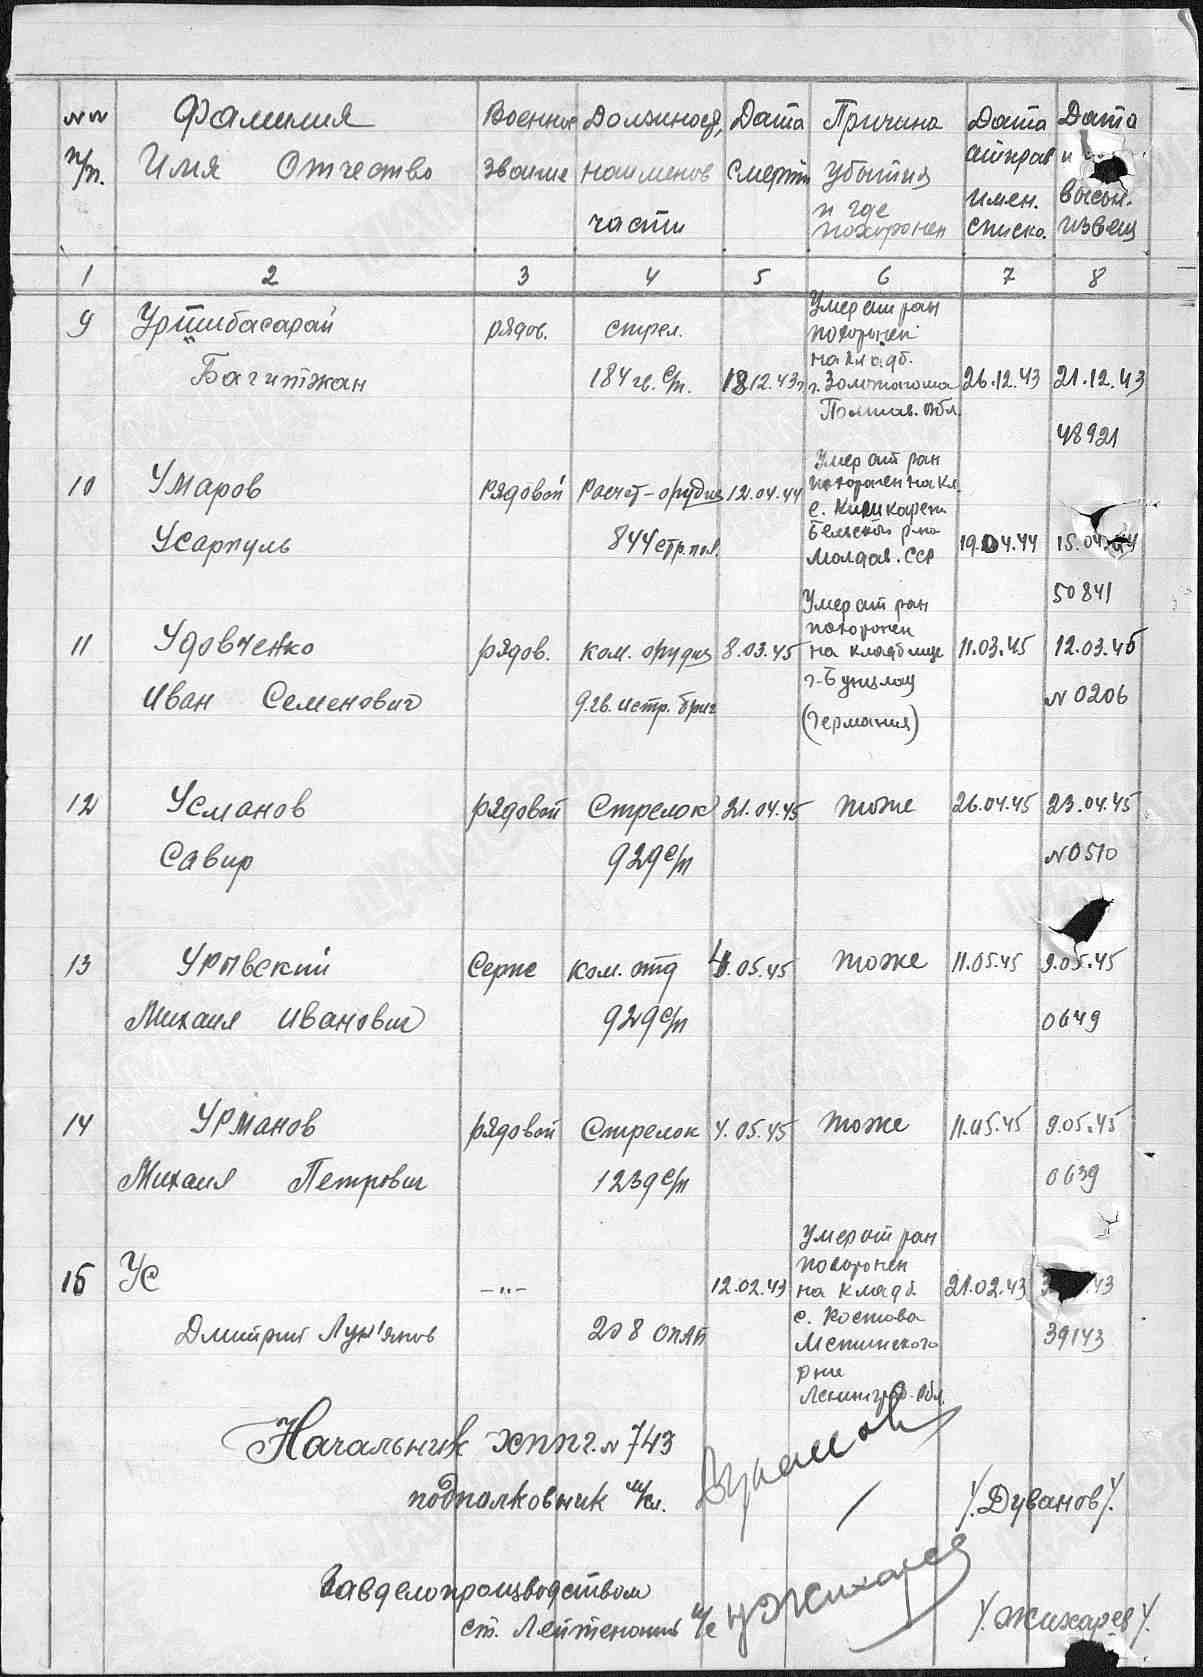 №№ Фамилия Военное Должность, Дата Причина Дата Дата
п/п. Имя Отчество звание наименов смерти убытия отправ и
части и где имен. высыл.
похоронен списко. извещ
1 2 3 4 5 6 7 8
Умер от ран
9 рядов. стрел. похоронен
на кладб.
Багитжан 184 гв. с/п. 18.12.43г. г. Золотоноша 26.12.43 21.12.43
Полтав. обл.
48921
Умер от ран
10 Умаров Рядовой Расчет-орудия 12.04.44 похоронен на кл.
с.
Усаркуль 844 стр. пол. Бельской р-на 19.04.44 15.04.44
Молдав. ССР
50841
Умер от ран
похоронен
11 Удовченко рядов. ком. орудия 8.03.45 на кладбище 11.03.45 12.03.45
Иван Семенович 9.гв. истр. бриг г-Бунцлау № 0206
(Германия)
12 Усманов рядовой Стрелок 21.04.45 тоже 26.04.45 23.04.45
Савир 929 с/п №0510
13 Серж Ком. отд 4.05.45 тоже 11.05.45 9.05.45
Михаил Иванович 929 с/п 0649
14 Урманов рядовой Стрелок 4.05.45 тоже 11.05.45 9.05.45
Михаил Петрович 1239 с/п 0639
Умер от ран
похоронен
15 Ус -"- 12.02.43 на кладб. 21.02.43 43
с. Костова
Дмитрий Лук'янов 208 ОПАБ 39143
р-на
Ленинград. обл.
Начальник хппг. № 743
подполковник м/сл. /.Дуванов/.
Завделопроизводством
ст. Лейтенант м/с Жихарев /.Жихарев/.